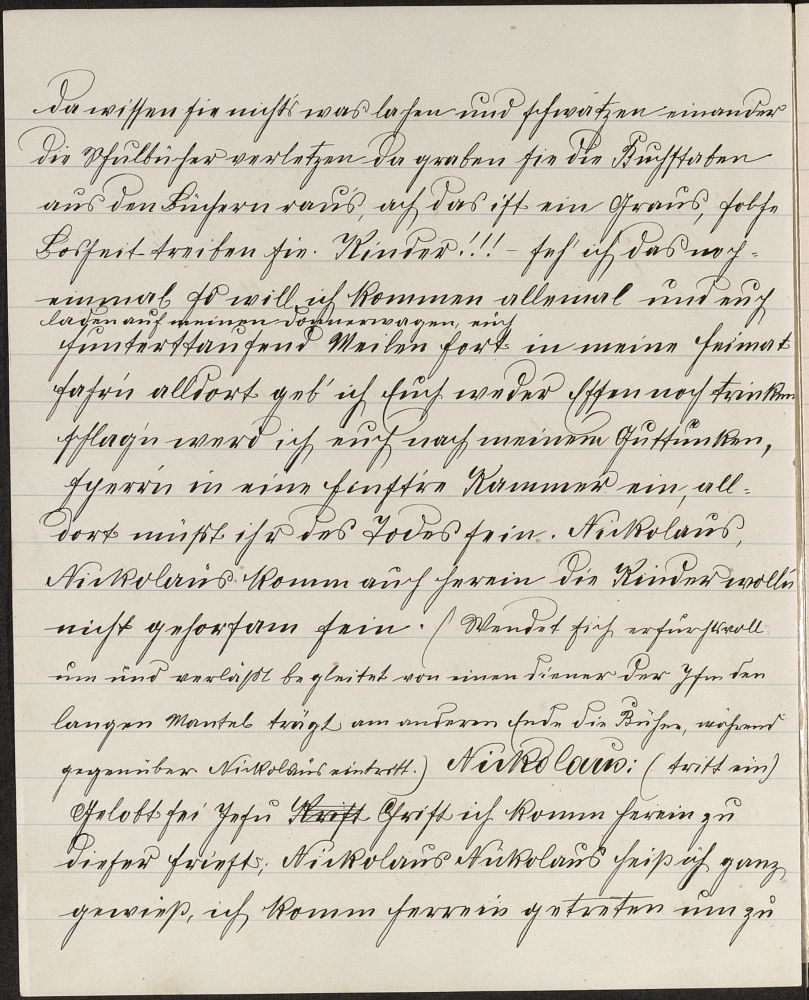 da wissen sie nichts was lachen und schwätzen einander
die Schulbücher verletzen da graben sie die Buchstaben
aus den Büchern raus, ach das ist ein Graus, solche
Bosheit treiben sie. Kinder!!! – seh' ich das noch-
einmal so will ich kommen allemal und euch
laden auf meinen Donnerwagen, euch
hunterttausend Meilen fort in meine Heimat
fahr'n alldort geb' ich Euch weder Essen noch trinken
schlag'n werd ich euch nach meinem Guttünken,
sperr'n in eine finst're Kammer ein, all-
dort müßt ihr des Todes sein. Nickolaus,
Nickolaus komm auch herein die Kinder woll'n
nicht gehorsam sein. (Wendet sich erfurchtsvoll
um und verläßt begleitet von einen Diener der Ihm den
langen Mantel trägt am anderen Ende die Bühne, während
gegenüber Nickolaus eintritt.) Nickolaus: (tritt ein)
Gelobt sei Jesu Krist Christ ich komm herein zu
dieser Frießt; Nickolaus Nickolaus heiß ich ganz
gewieß, ich komm herrein getreten um zu